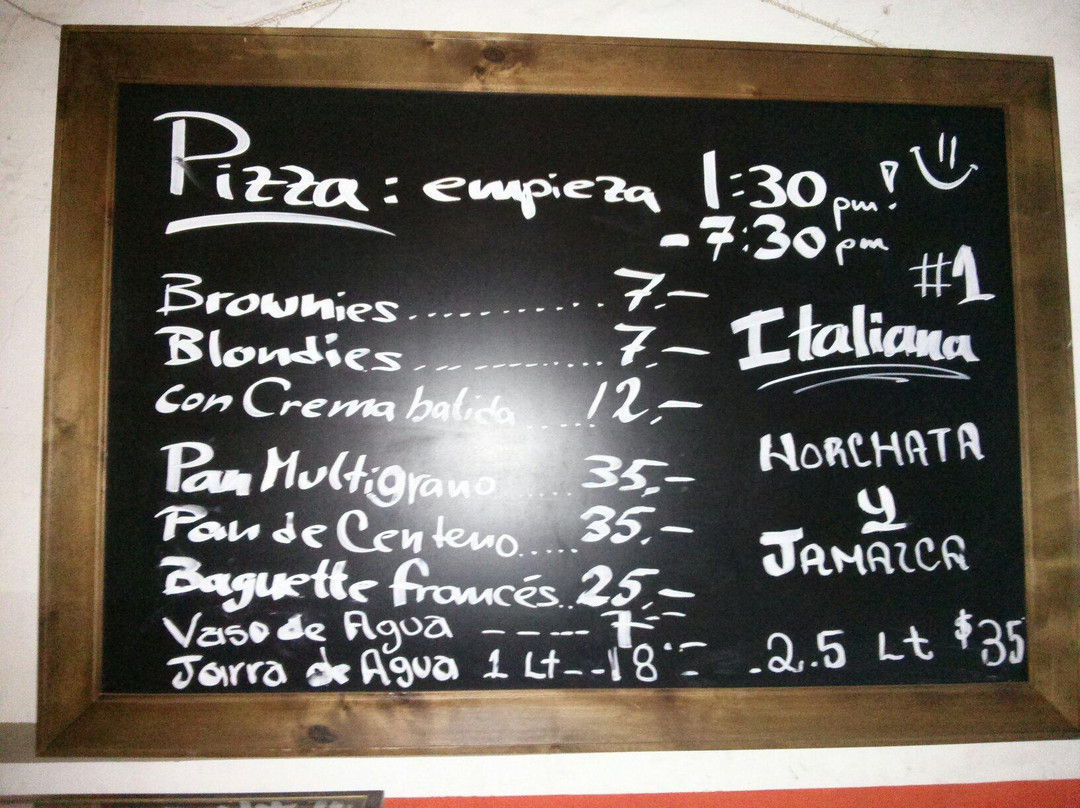 Pizza: empieza 1:30 pm!
- 7:30 pm
#1
Italiana
Brownies.......... 7.-
Blondies............ 7.-
con Crema batida ..... 12.-
Pan Multigrano ..... 35.-
Pan de Centeno..... 35.-
Baguette francés.. 25.-
Vaso de Agua ----- 7.-
Jarra de Agua 1 Lt--- 18.- .2.5 Lt $35
HORCHATA
y
JAMAICA